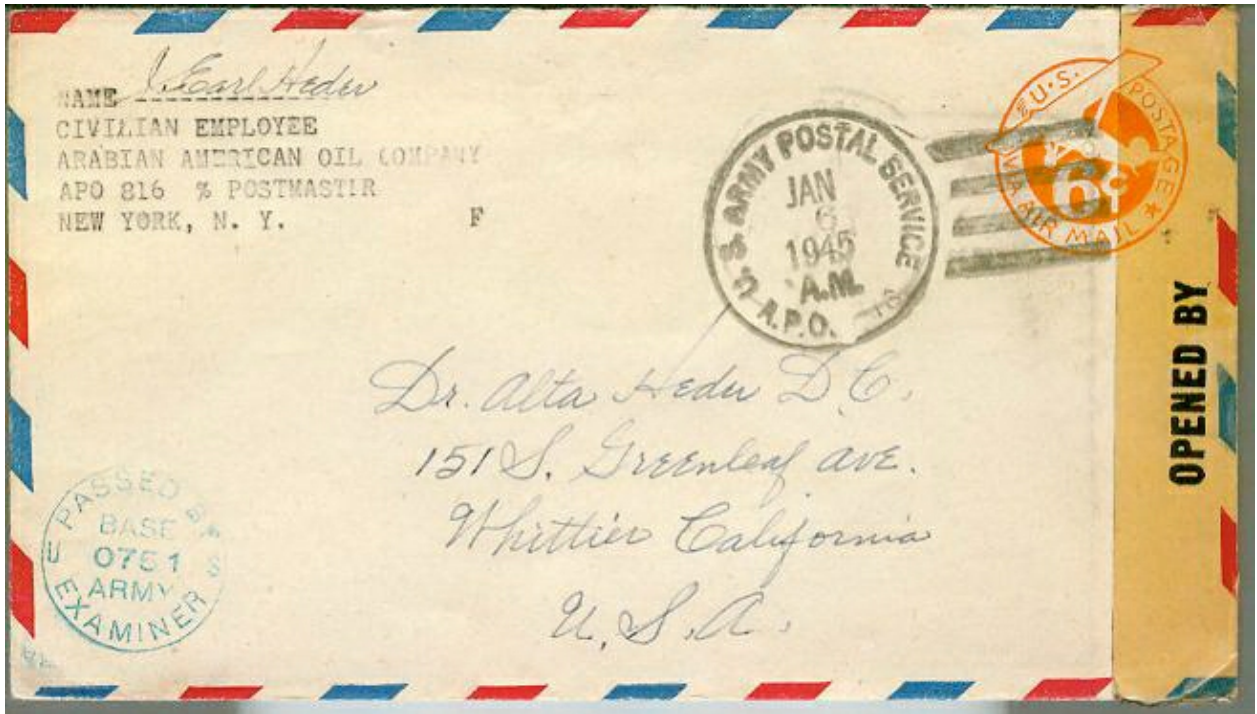 NAME J. Earl Heder
CIVILIAN EMPLOYEE
ARABIAN AMERICAN OIL COMPANY
APO 816 % POSTMASTER
NEW YORK, N. Y. F
U. S. ARMY POSTAL SERVICE
JAN
6
1945
A.M.
A.P.O.
U.S. POSTAGE
6¢
VIA AIR MAIL
OPENED BY
Dr. Alta Heder D.C.
151 S. Greenleaf ave.
Whittier California
U.S.A.
PASSED BY
BASE
0751
ARMY
EXAMINER
U S